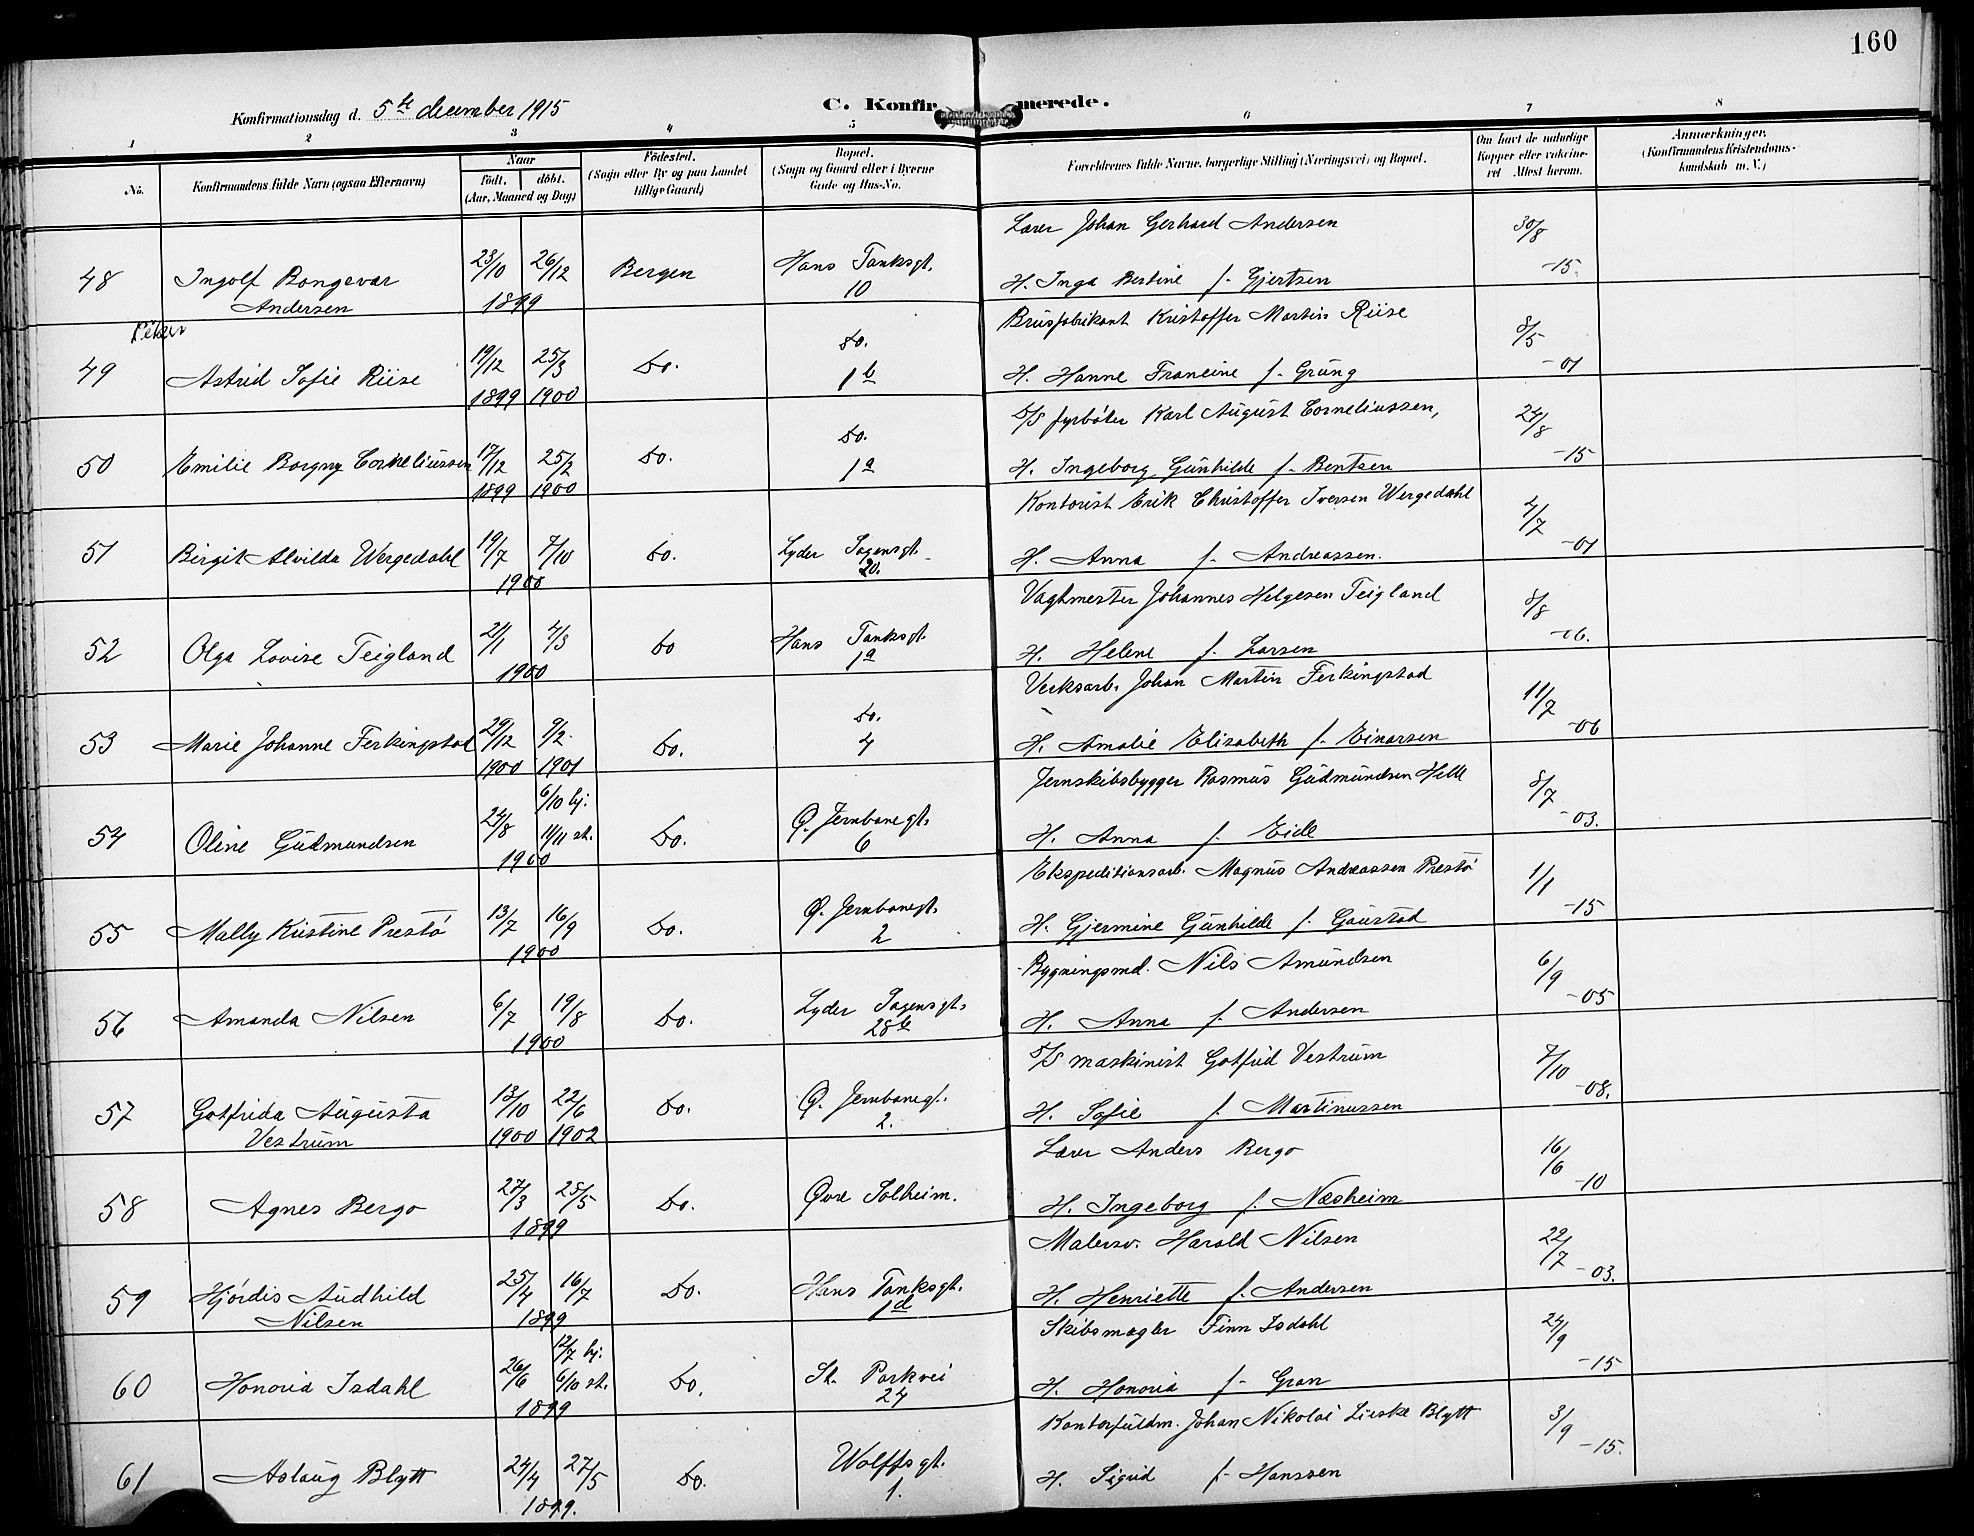 160
Konfirmationsdag d. 5te december 1915
C. Konfirmerede.
1 2 3 4 5 6 7 8
No. Konfirmandens fulde Navn (ogsaa Efternavn) Naar født. døbt. (Aar, Maaned og Dag) Fødested. (Sogn eller By og paa Landet tillige Gaard) Bopæl. (Sogn og Gaard eller i Byerne Gade og Hus-No. Forældrenes fulde Navne, borgerlige Stilling (Næringsvei) og Bopæl. Om havt de naturlige Kopper eller vaccineret Attest herom. Anmærkninger. (Konfirmandens Kristendomskundskab m. V.)
Lærer Johan Gerhard Andersen 30/8
48 Ingolf Bongevar 23/10 26/12 Bergen Hans Tanksgt. 10 H. Inga Bertine f. Gjertsen -15.
Andersen 1899
Piker
Brusfabrikant Kristoffer Martin Riise 8/5
49 Astrid Sofie Riise 19/12 25/3 Do. Do. 1b H. Hanne Francine f. Grung -01
1899 1900
D/S fyrbøter Karl August Corneliussen, 24/8
50 Emilie Borgny Corneliussen 17/12 25/2 Do. Do. 1a H. Ingeborg Gunhilde f. Bentsen -15
1899 1900
Kontorist Erik Christoffer Iversen Wergedahl 4/7
51 Birgit Alvilda Wergedahl 19/7 7/10 Do. Lyder Sagensgt. 20. H. Anna f. Andreassen. -01
1900
Vagtmester Johannes Helgesen Teigland 8/8
52 Olga Lovise Teigland 21/1 4/3 Do Hans Tanksgt. 1a H. Helene f. Larsen -06.
1900
Verksarb. Johan Martin Ferkingstad 11/7
53 Marie Johanne Ferkingstad 29/12 9/2 Do. Do. 4 H. Amalie Elisabeth f. Einarsen -06
1900 1901
Jernskibsbygger Rasmus Gudmundsen Helle 8/7
54 Oline Gudmundsen 24/8 6/10 hj: 11/11 st. Do. Ø. Jernbanegt. 6 H. Anna f. Eide -03.
1900
Ekspeditionsarb. Magnus Andreassen Prestø 1/1
55 Mally Kristine Prestø 13/7 16/9 Do. Ø. Jernbanegt. 2 H. Gjermine Gunhilde f. Gaustad -15
1900
Bygningsmd. Nils Amundsen 6/9
56 Amanda Nilsen 6/7 19/8 Do. Lyder Sagensgt. 28b H. Anna f. Andersen -05
1900
D/S maskinist Gotfrid Vestrum 7/10
57 Gotfrida Augusta 13/10 22/6 Do. Ø. Jernbanegt. 2. H. Sofie f. Martinussen -08.
Vestrum 1900 1902
Lærer Anders Bergo 16/6
58 Agnes Bergo 27/3 25/5 Do. Øvre Solheim. H. Ingeborg f. Næsheim -10
1899
Malersv. Harald Nilsen 22/7
59 Hjørdis Audhild 25/4 16/7 Do. Hans Tanksgt. 1d H. Henriette f. Andersen -03.
Nilsen 1899
Skibsmægler Finn Isdahl 24/9
60 Honoria Isdahl 26/6 12/7 hj: 6/10 st. Do. St. Parkvei 24 H. Honoria f. Gran -15
1899
Kontorfuldm. Johan Nikolai Lieske Blytt 3/9
61 Aslaug Blytt 24/4 27/5 Do. Wolffsgt. 1. H. Sigrid f. Hanssen -15.
1899.